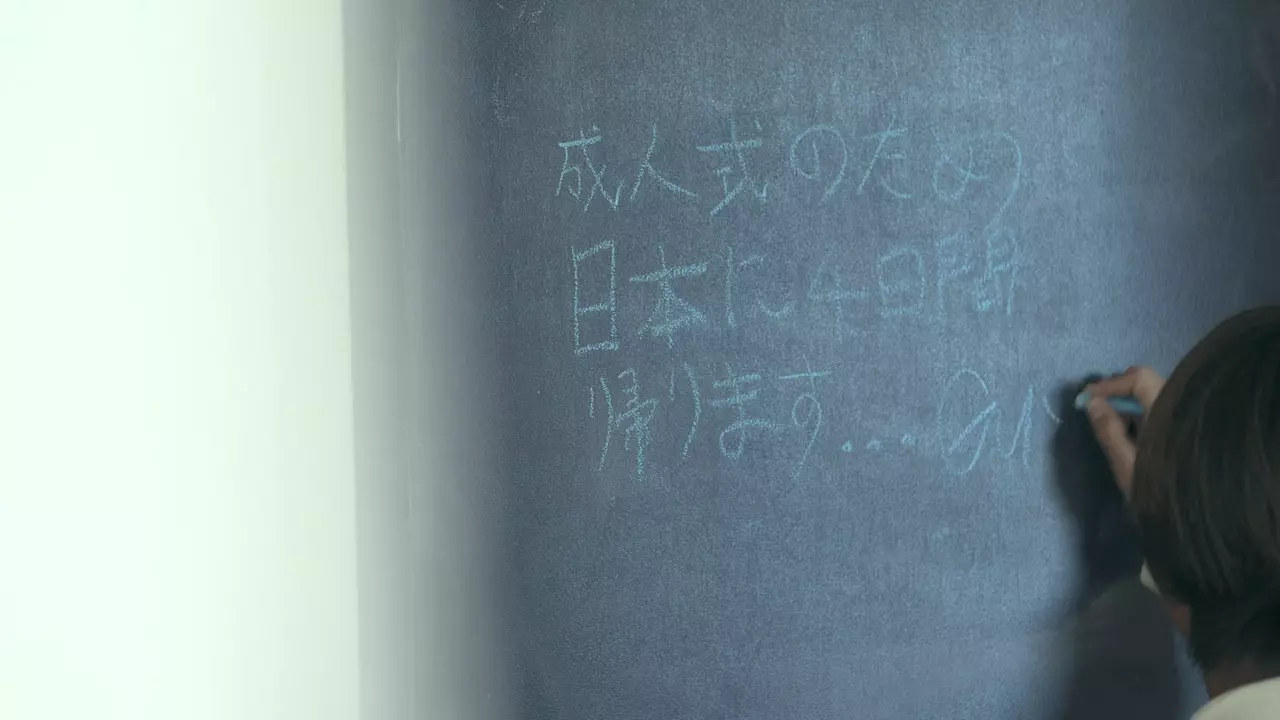 成人式のため
日本に4日間
帰ります...